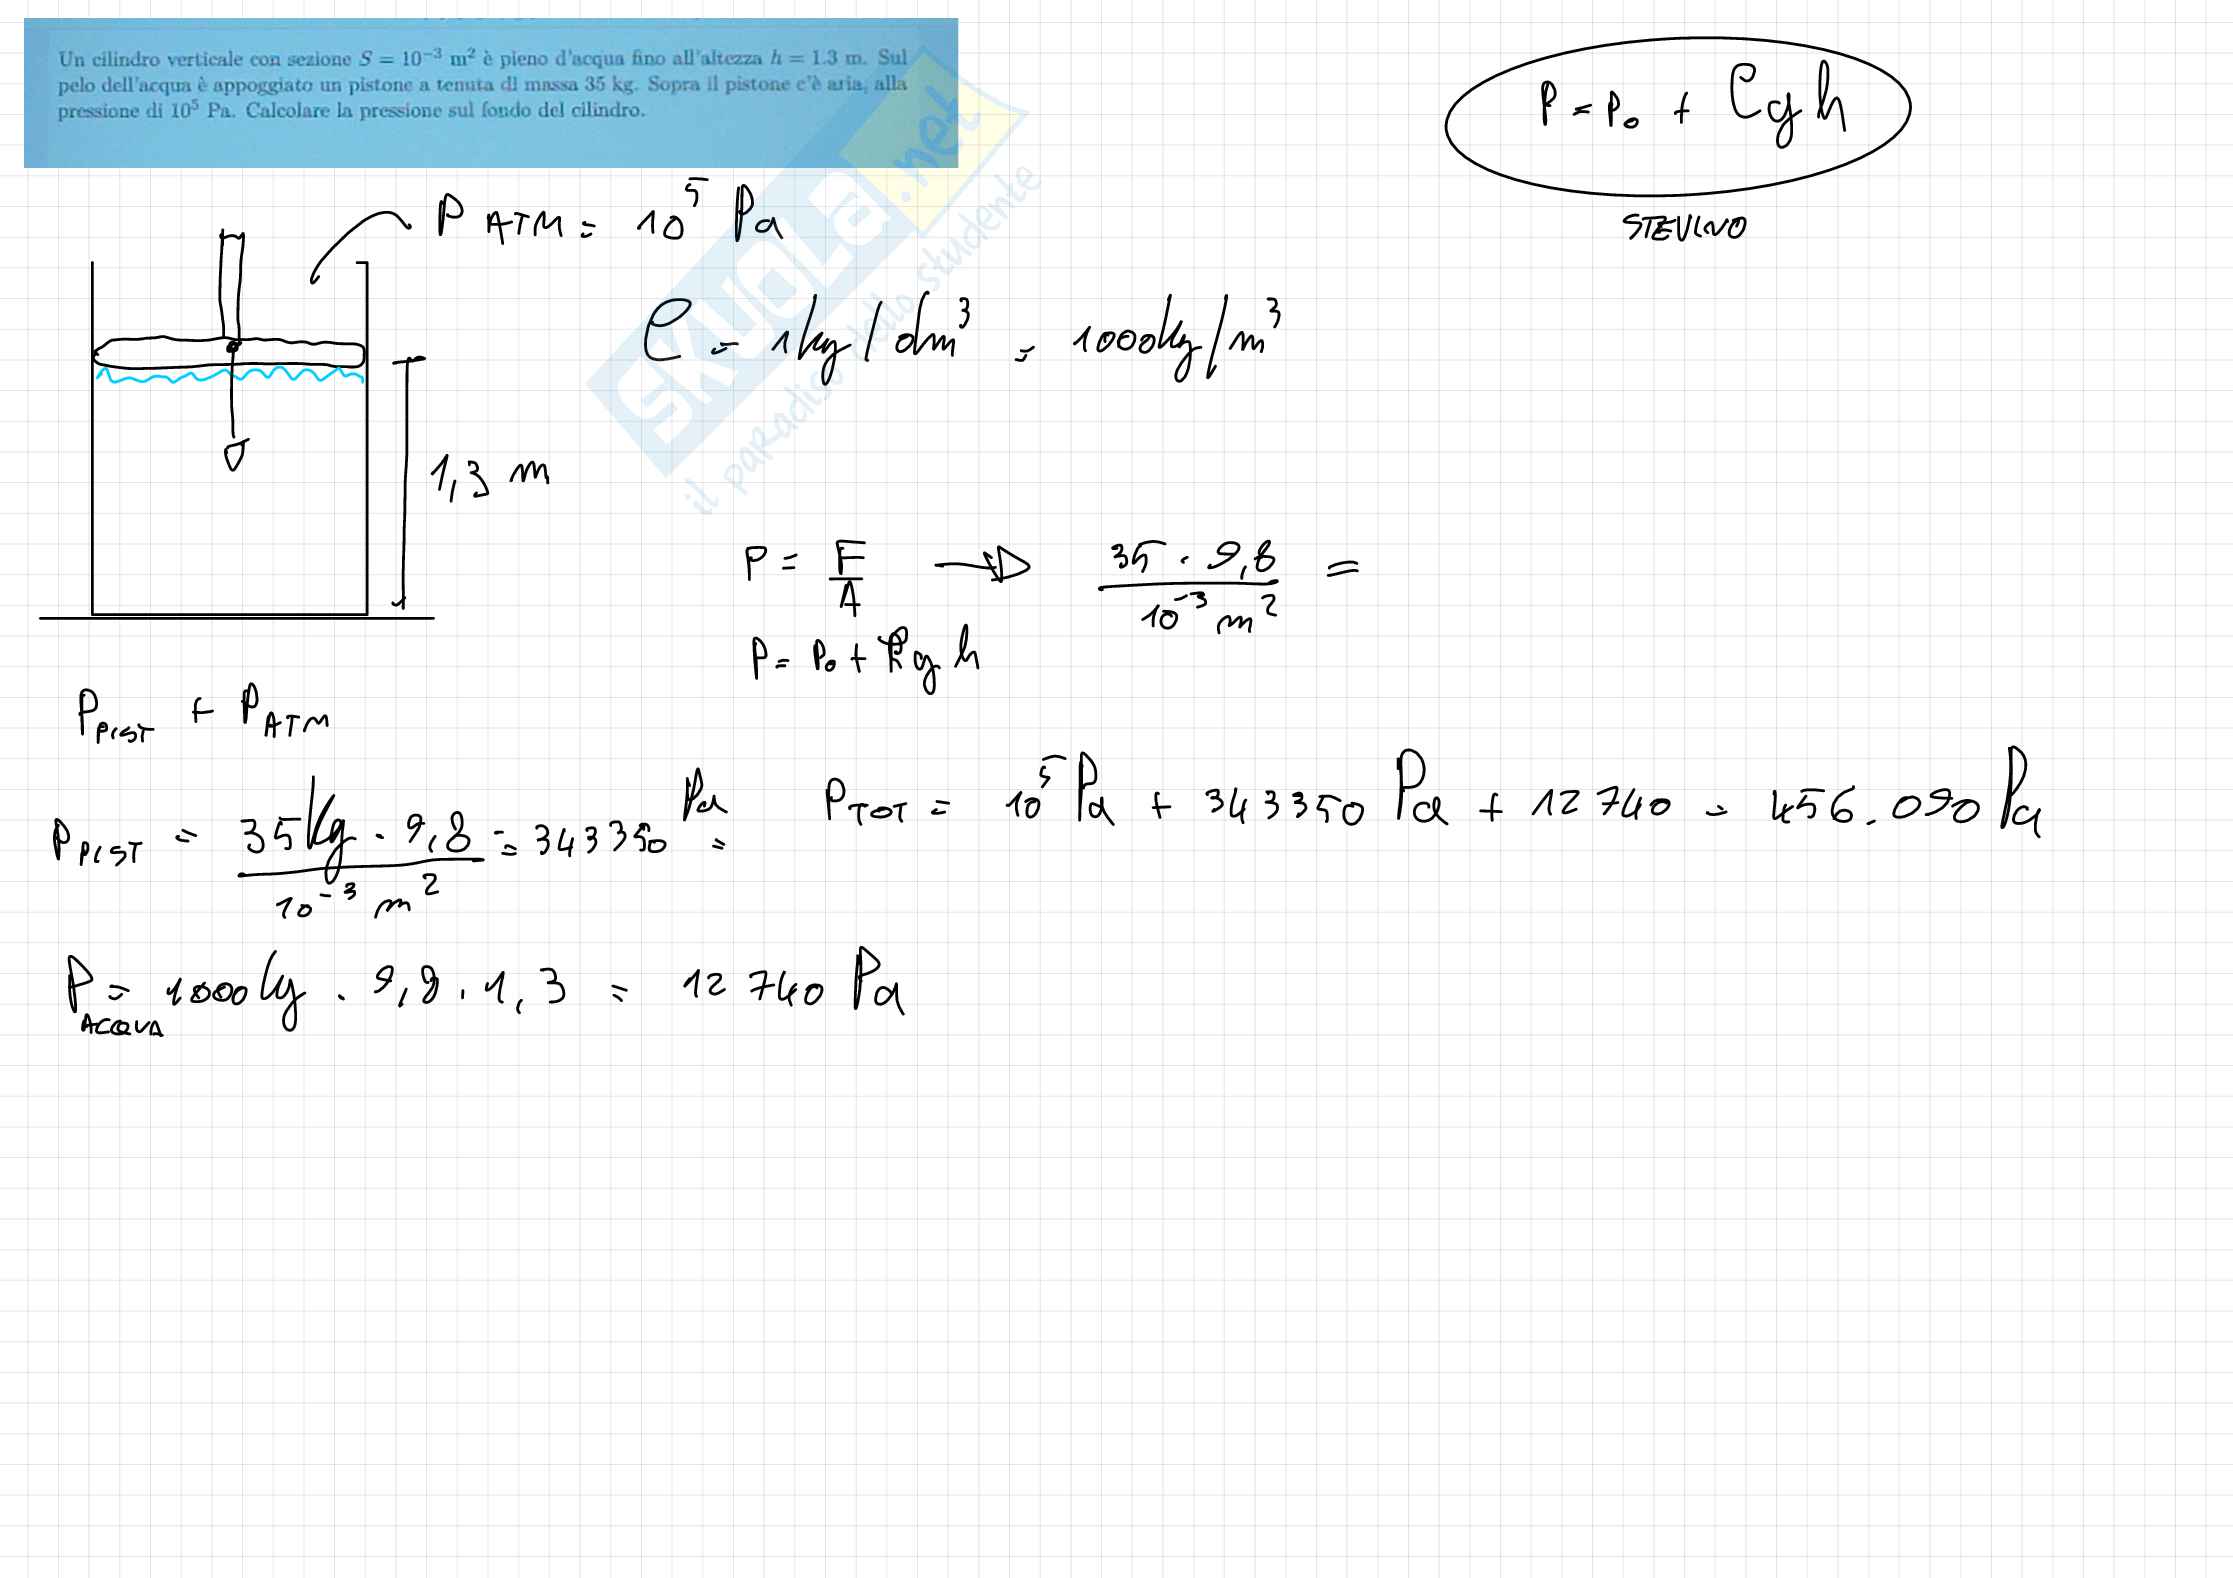 Un cilindro verticale con sezione S = 10⁻³ m² è pieno d'acqua fino all'altezza h = 1.3 m. Sul
pelo dell'acqua è appoggiato un pistone a tenuta di massa 35 kg. Sopra il pistone c'è aria, alla
pressione di 10⁵ Pa. Calcolare la pressione sul fondo del cilindro.
P = P₀ + ρgh
STEVINO
P ATM = 10⁵ Pa
ρ = 1kg/dm³ = 1000kg/m³
1,3 m
P = F/A → 35 · 9,8 / 10⁻³ m² =
P = P₀ + ρgh
P PIST + P ATM
P PIST = 35kg · 9,8 / 10⁻³ m² = 343350 Pa =
P TOT = 10⁵ Pa + 343350 Pa + 12740 = 456.090 Pa
P ACQUA = 1000kg · 9,8 · 1,3 = 12740 Pa
SKUOLA.net
il paradiso dello studente